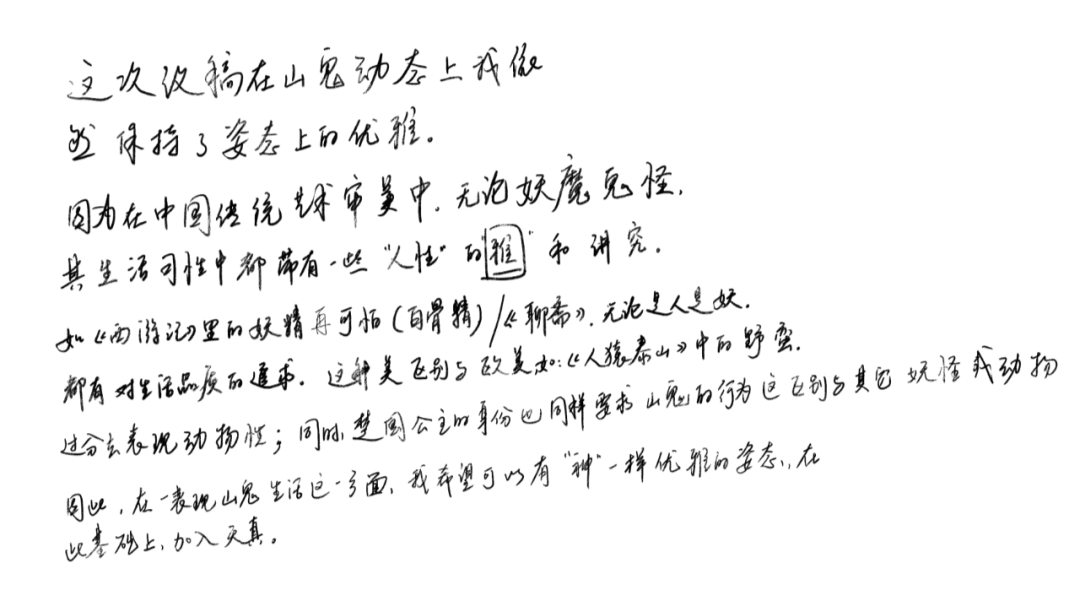 这次设稿在山鬼动态上我依
然保持了姿态上的优雅。
因为在中国传统艺术审美中，无论妖魔鬼怪，
其生活习性中都带有一些“人性”的“雅”和讲究。
如《西游记》里的妖精再可怕（白骨精）/《聊斋》，无论是人是妖，
都有对生活品质的追求。这种美区别与欧美如：《人猿泰山》中的野蛮，
过分去表现动物性；同时，楚国公主的身份也同样要求山鬼的行为这区别与其它妖怪或动物
因此，在表现山鬼生活这一方面，我希望可以有“神”一样优雅的姿态，在
此基础上，加入天真。